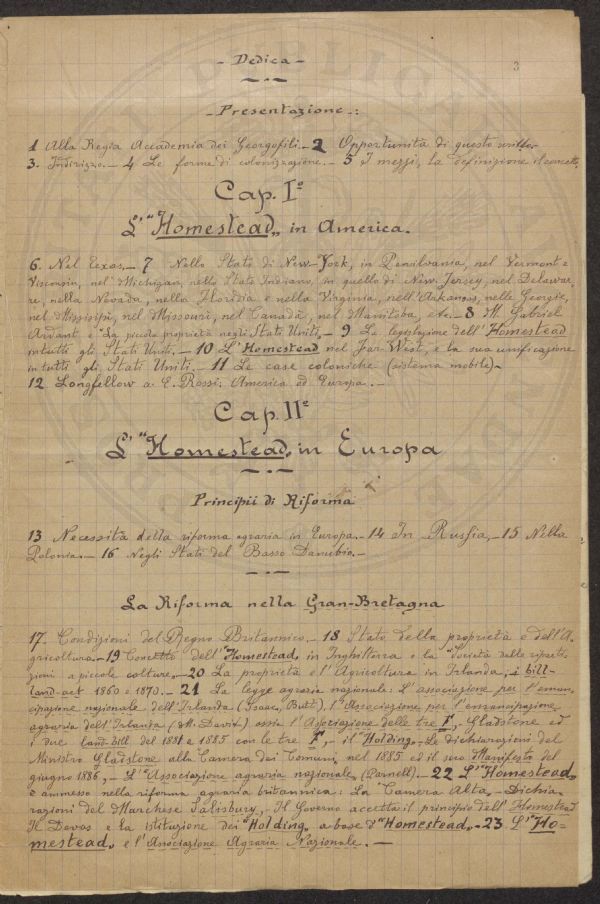 - Dedica -
3
- Presentazione -:
1 Alla Regia Accademia dei Georgofili - 2 Opportunità di questo scritto -
3. Indirizzo. - 4 Le forme di colonizzazione. - 5 I mezzi, la definizione
Cap. Iº
L'"Homestead„ in America.
6. Nel Texas, - 7 Nello Stato di New-York, in Pensilvania, nel Vermont e
Visconsin, nel Michigan, nello Stato Indiano, in quello di New-Jersey, nel Delawar,
re, nella Nevada, nella Floridia e nella Virginia, nell'Arkansas, nelle Georgie,
nel Missisipì, nel Missouri, nel Canadà, nel Manitoba, etc. - 8 M. Gabriel
Ardant e "La piccola proprietà negli Stati Uniti„ - 9 La legislazione dell'Homestead
in tutti gli Stati Uniti. - 10 L'Homestead nel Far-West, e la sua unificazione
in tutti gli Stati Uniti - 11 Le case coloniche (sistema mobile) -
12 Longfellow a E. Rossi: America ed Europa. -
Cap. IIº
L'"Homestead„ in Europa
Principii di Riforma
13 Necessità della riforma agraria in Europa. - 14 In Russia, - 15 Nella
Polonia. - 16 Negli Stati del Basso Danubio. -
La Riforma nella Gran-Bretagna
17. Condizioni del Regno Britannico. - 18 Stato della proprietà e dell'A,
gricoltura. - 19 Concetto dell'"Homestead„ in Inghilterra e la "Società delle riparti-
zioni a piccole colture„ - 20 La proprietà e l'Agricoltura in Irlanda; i bill-
land-act 1860 e 1870. - 21 La legge agraria nazionale: L'associazione per l'eman,
cipazione nazionale dell'Irlanda (Isaac, Butt), l'Associazione per l'emancipazione
agraria dell'Irlanda (M. Davitt) ossia l'Associazione delle tre F, Gladstone ed
i due land-bill del 1881 e 1885 con le tre F, - il "Holding„ - Le dichiarazioni del
Ministro Gladstone alla Camera dei Comuni nel 1885 ed il suo Manifesto del
giugno 1886, - L'"Associazione agraria nazionale„ (Parnell). - 22 L'"Homestead„
è ammesso nella riforma agraria britannica: La Camera Alta, - Dichia-
razioni del Marchese Salisbury, - Il Governo accetta il principio dell'Homestead
Il Devos e la istituzione dei "Holding„ a base d'"Homestead„ - 23 L'"Ho-
mestead„ e l'Associazione Agraria Nazionale. -